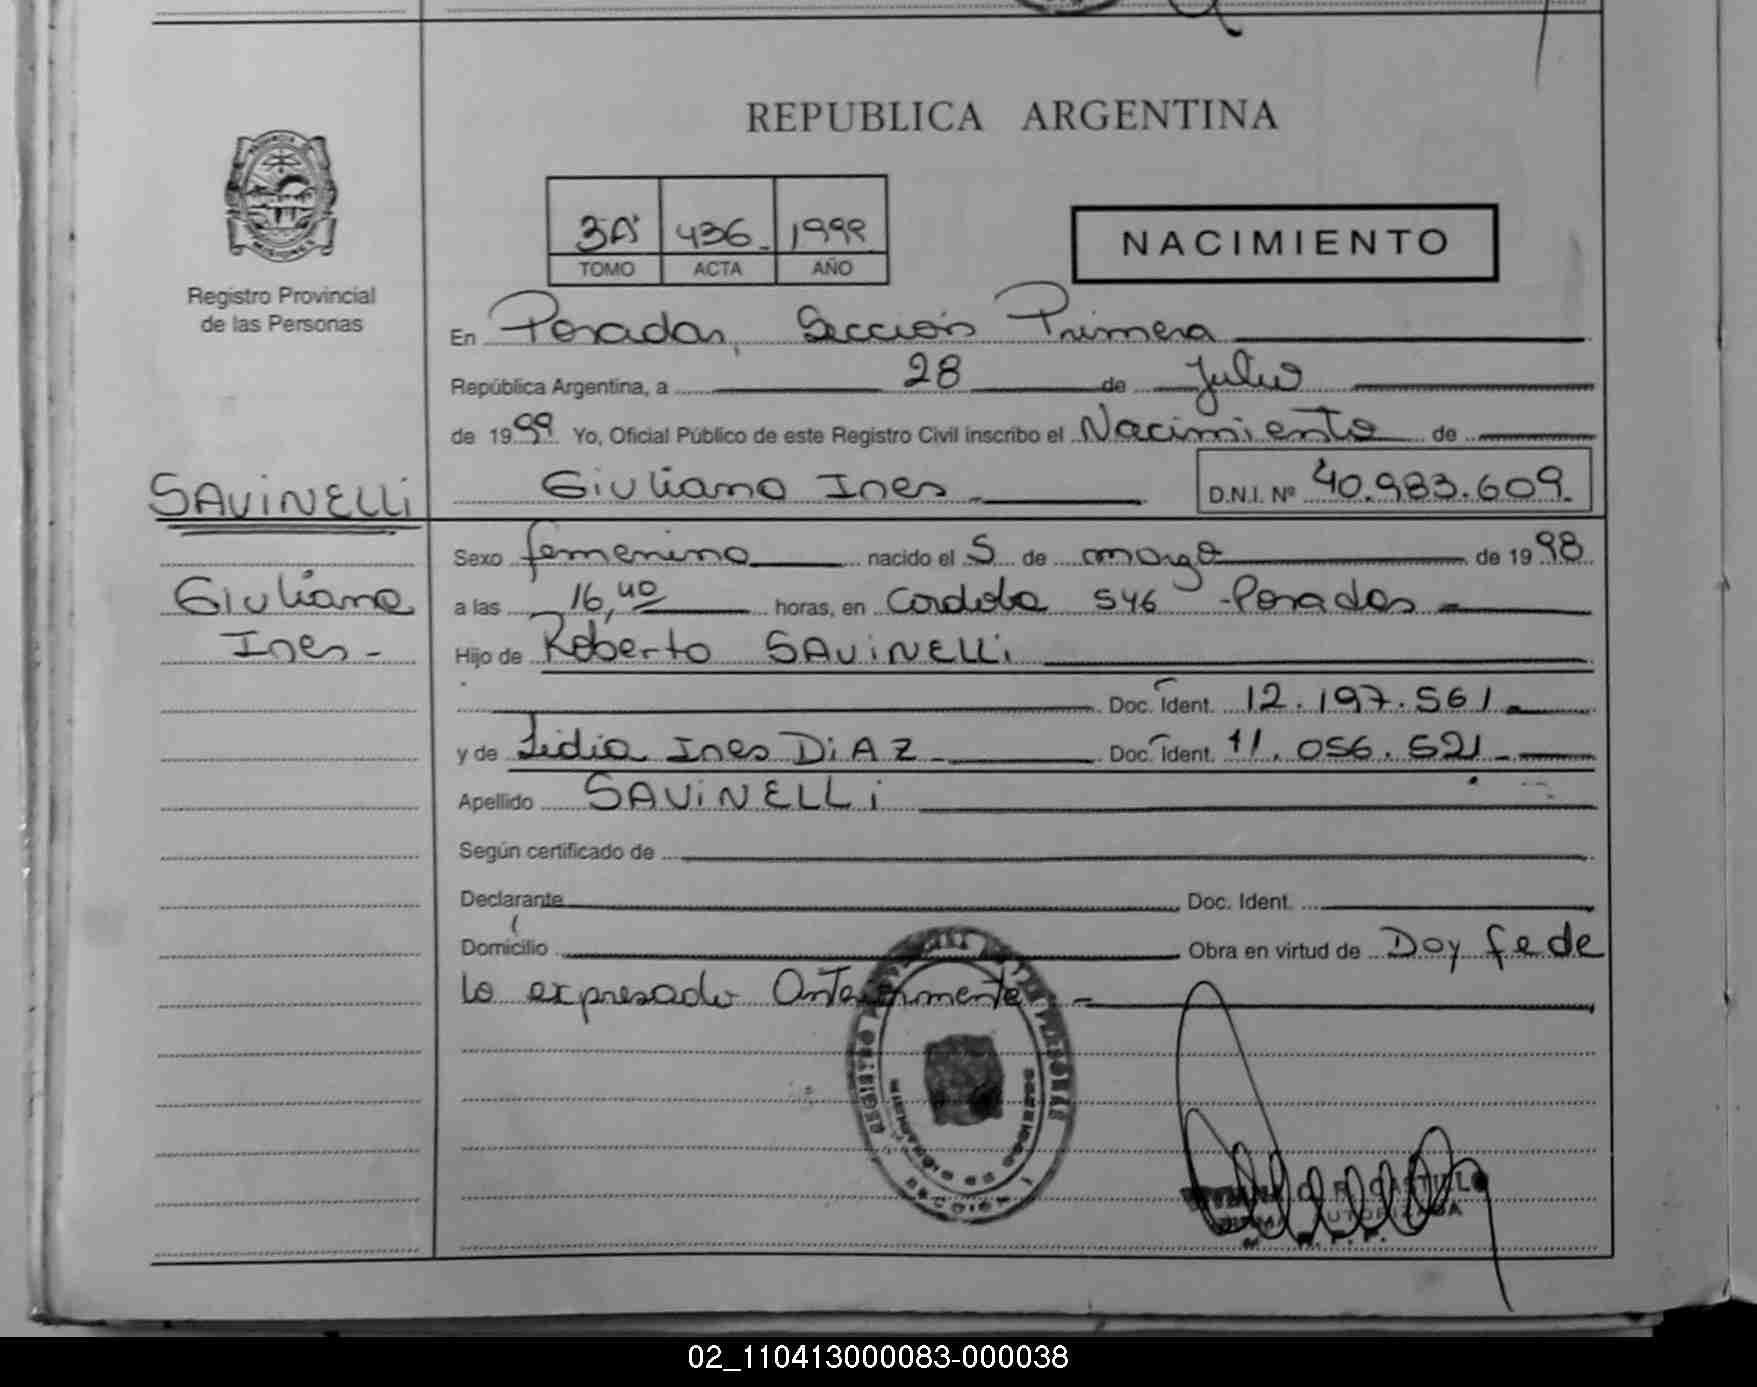 REPUBLICA ARGENTINA
3A 436 1999
TOMO ACTA AÑO
NACIMIENTO
Registro Provincial
de las Personas
En Posadas, Sección Primera
República Argentina, a 28 de Julio
de 1999 Yo, Oficial Público de este Registro Civil inscribo el Nacimiento de
SAViNELLi
Giuliana Ines D.N.I. Nº 40.983.609.
Sexo femenino nacido el 5 de marzo de 1998
Giuliana
Ines -
a las 16,40 horas, en Cordoba 546 - Posadas
Hijo de Roberto SAViNELLi
Doc. Ident. 12.197.561
y de Lidia Ines DiAZ Doc. Ident. 11.056.521
Apellido SAViNELLi
Según certificado de
Declarante Doc. Ident.
Domicilio Obra en virtud de Doy fe de
lo expresado Anteriormente
SECCION 1
CASTILLO
AUTORIZADA
02_110413000083-000038